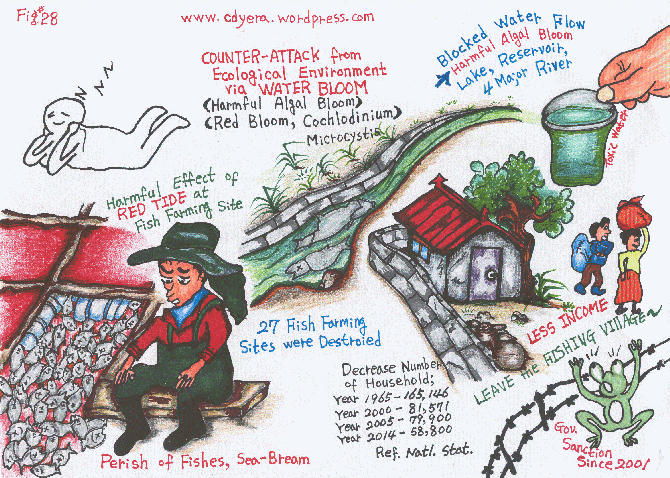 Fig# 28
www.cdyera.wordpress.com
COUNTER-ATTACK from
Ecological Environment
via WATER BLOOM
(Harmful Algal Bloom)
(Red Bloom, Cochlodinium)
Microcystis
Blocked Water Flow
Harmful Algal Bloom
Lake, Reservoir,
4 Major River
Toxic Water
Harmful Effect of
RED TIDE at
Fish Farming Site
27 Fish Farming
Sites were Destroied
LESS INCOME
LEAVE the FISHING VILLAGE~
Decrease Number
of Household;
Year 1965-165,146
Year 2000 - 81,571
Year 2005 - 79,900
Year 2014 - 58,800
Ref. Natl. Stat.
Gov.
Sanction
Since 2001
Perish of Fishes, Sea-Bream